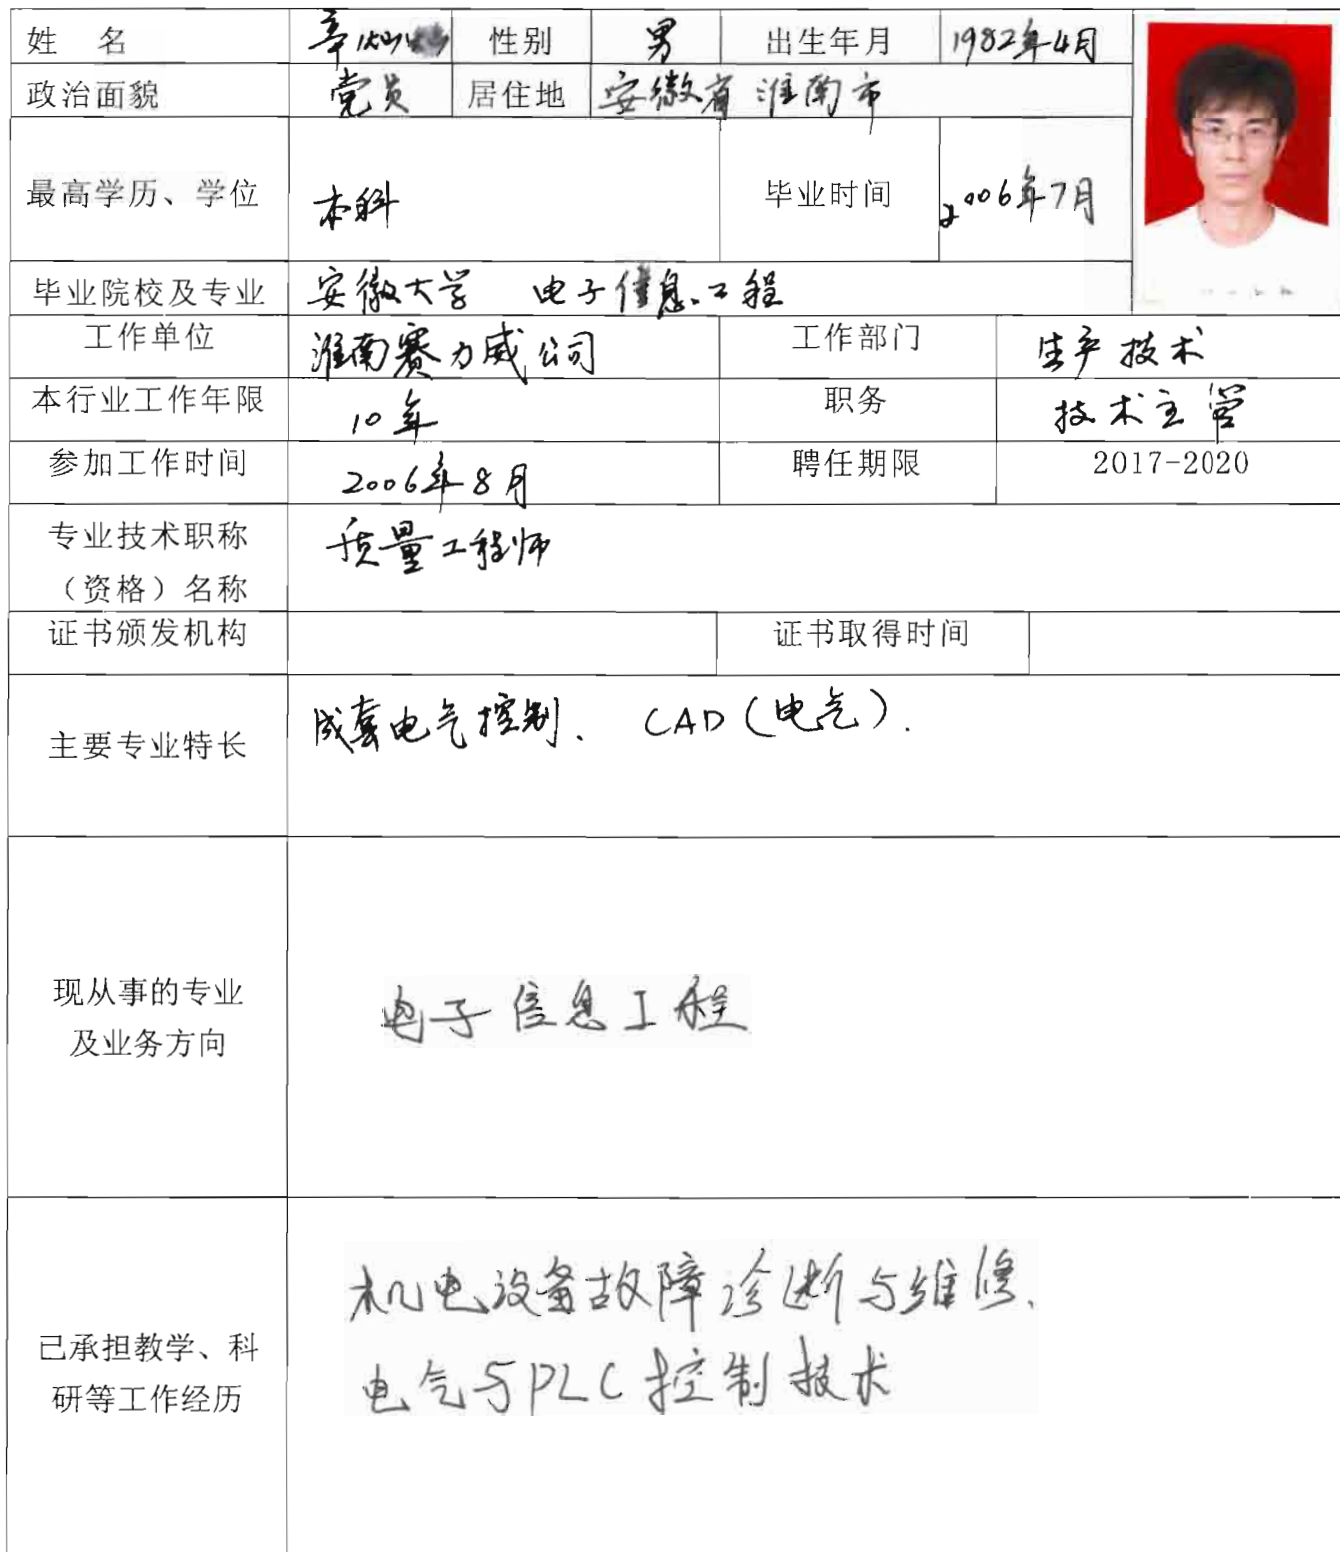 姓 名 辛 性别 男 出生年月 1982年4月
政治面貌 党员 居住地 安徽省淮南市
最高学历、学位 本科 毕业时间 2006年7月
毕业院校及专业 安徽大学 电子信息工程
工作单位 淮南赛力威公司 工作部门 生产技术
本行业工作年限 10年 职务 技术主管
参加工作时间 2006年8月 聘任期限 2017-2020
专业技术职称
（资格）名称 质量工程师
证书颁发机构 证书取得时间
主要专业特长 成套电气控制、 CAD（电气）.
现从事的专业
及业务方向
电子信息工程
已承担教学、科
研等工作经历
机电设备故障诊断与维修、
电气与PLC控制技术